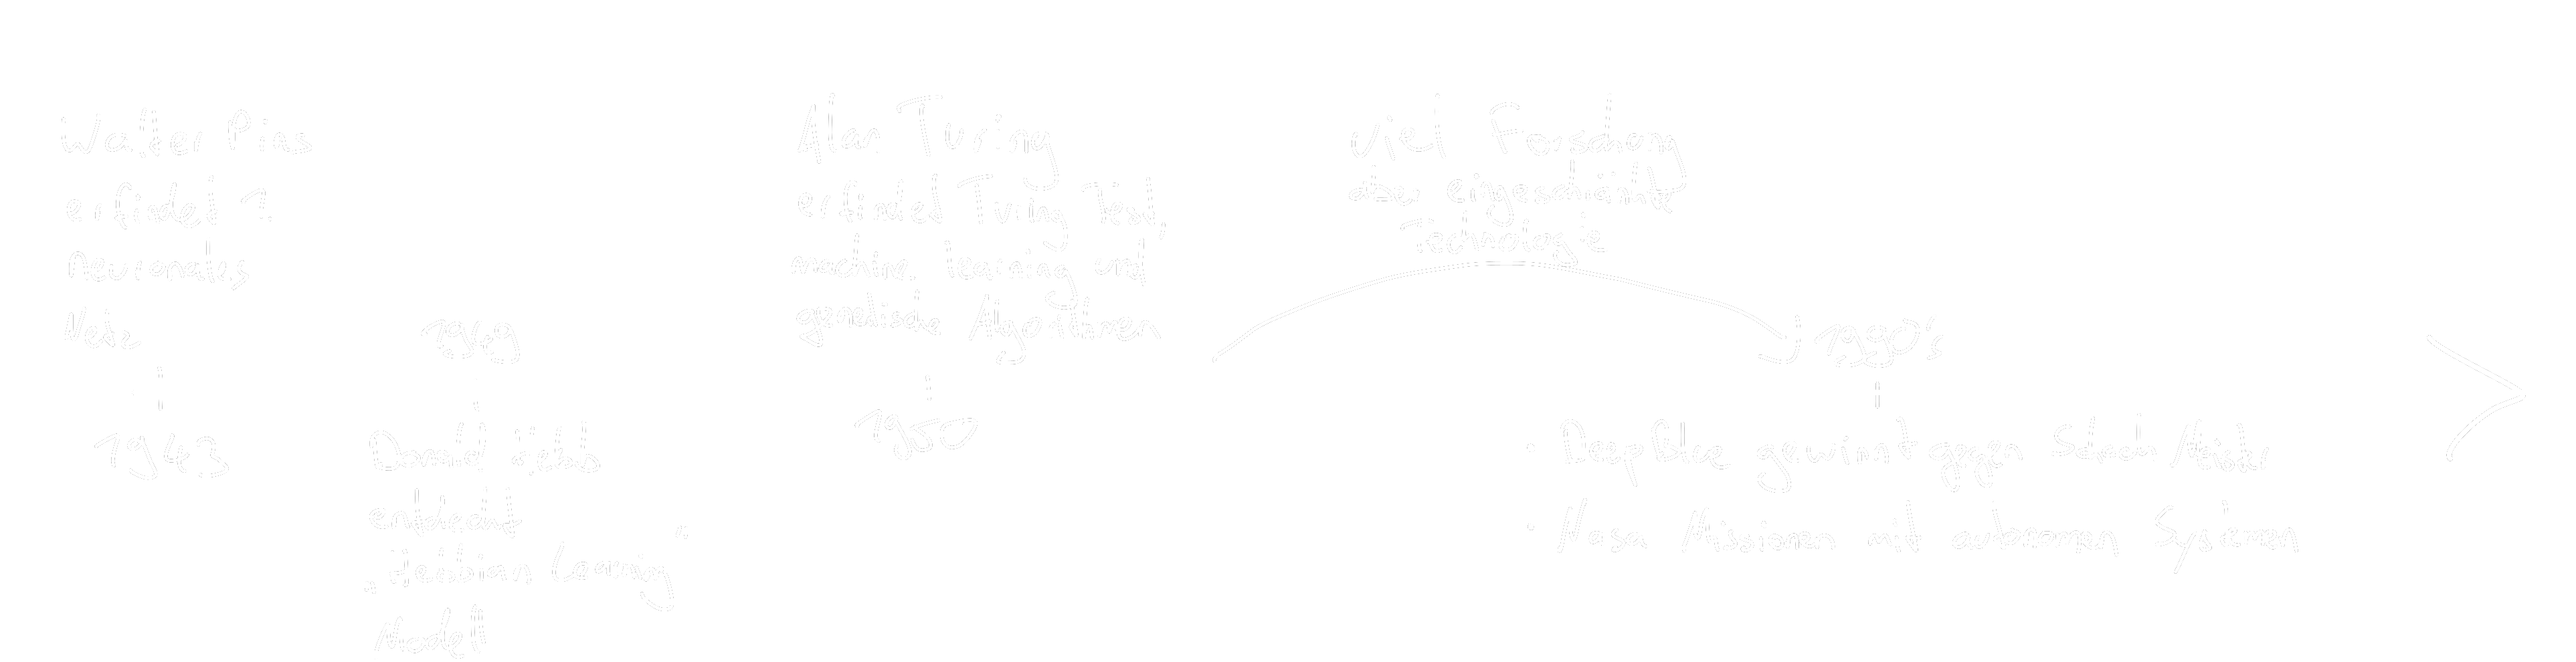 Walter Pins
erfindet 1.
neuronales
Netz
1943
1949
Donald Hebb
entdeckt
„Hebbian Learning“
Modell
Alan Turing
erfindet Turing Test,
machine learning und
genetische Algorithmen
1950
Viel Forschung
aber eingeschränkte
Technologie
1990's
· Deep Blue gewinnt gegen Schach Meister
· Nasa Missionen mit autonomen Systemen